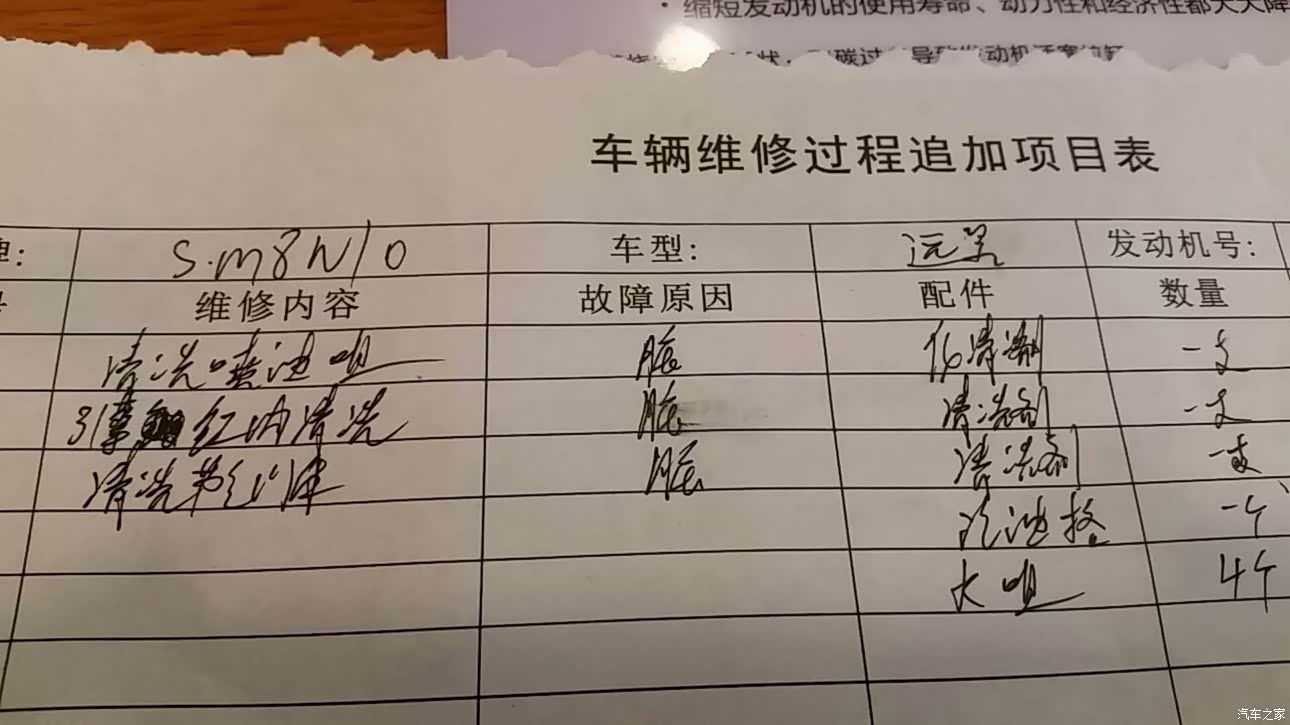 · 缩短发动机的使用寿命、动力性和经济性都大大降
车辆维修过程追加项目表
S.M8N10 车型: 远景 发动机号:
维修内容 故障原因 配件 数量
清洗喷油咀 脏 化清剂 一支
缸内清洗 脏 清洗剂 一支
清洗节气门 脏 清洗剂 一支
汽油格 一个
火咀 4个
汽车之家